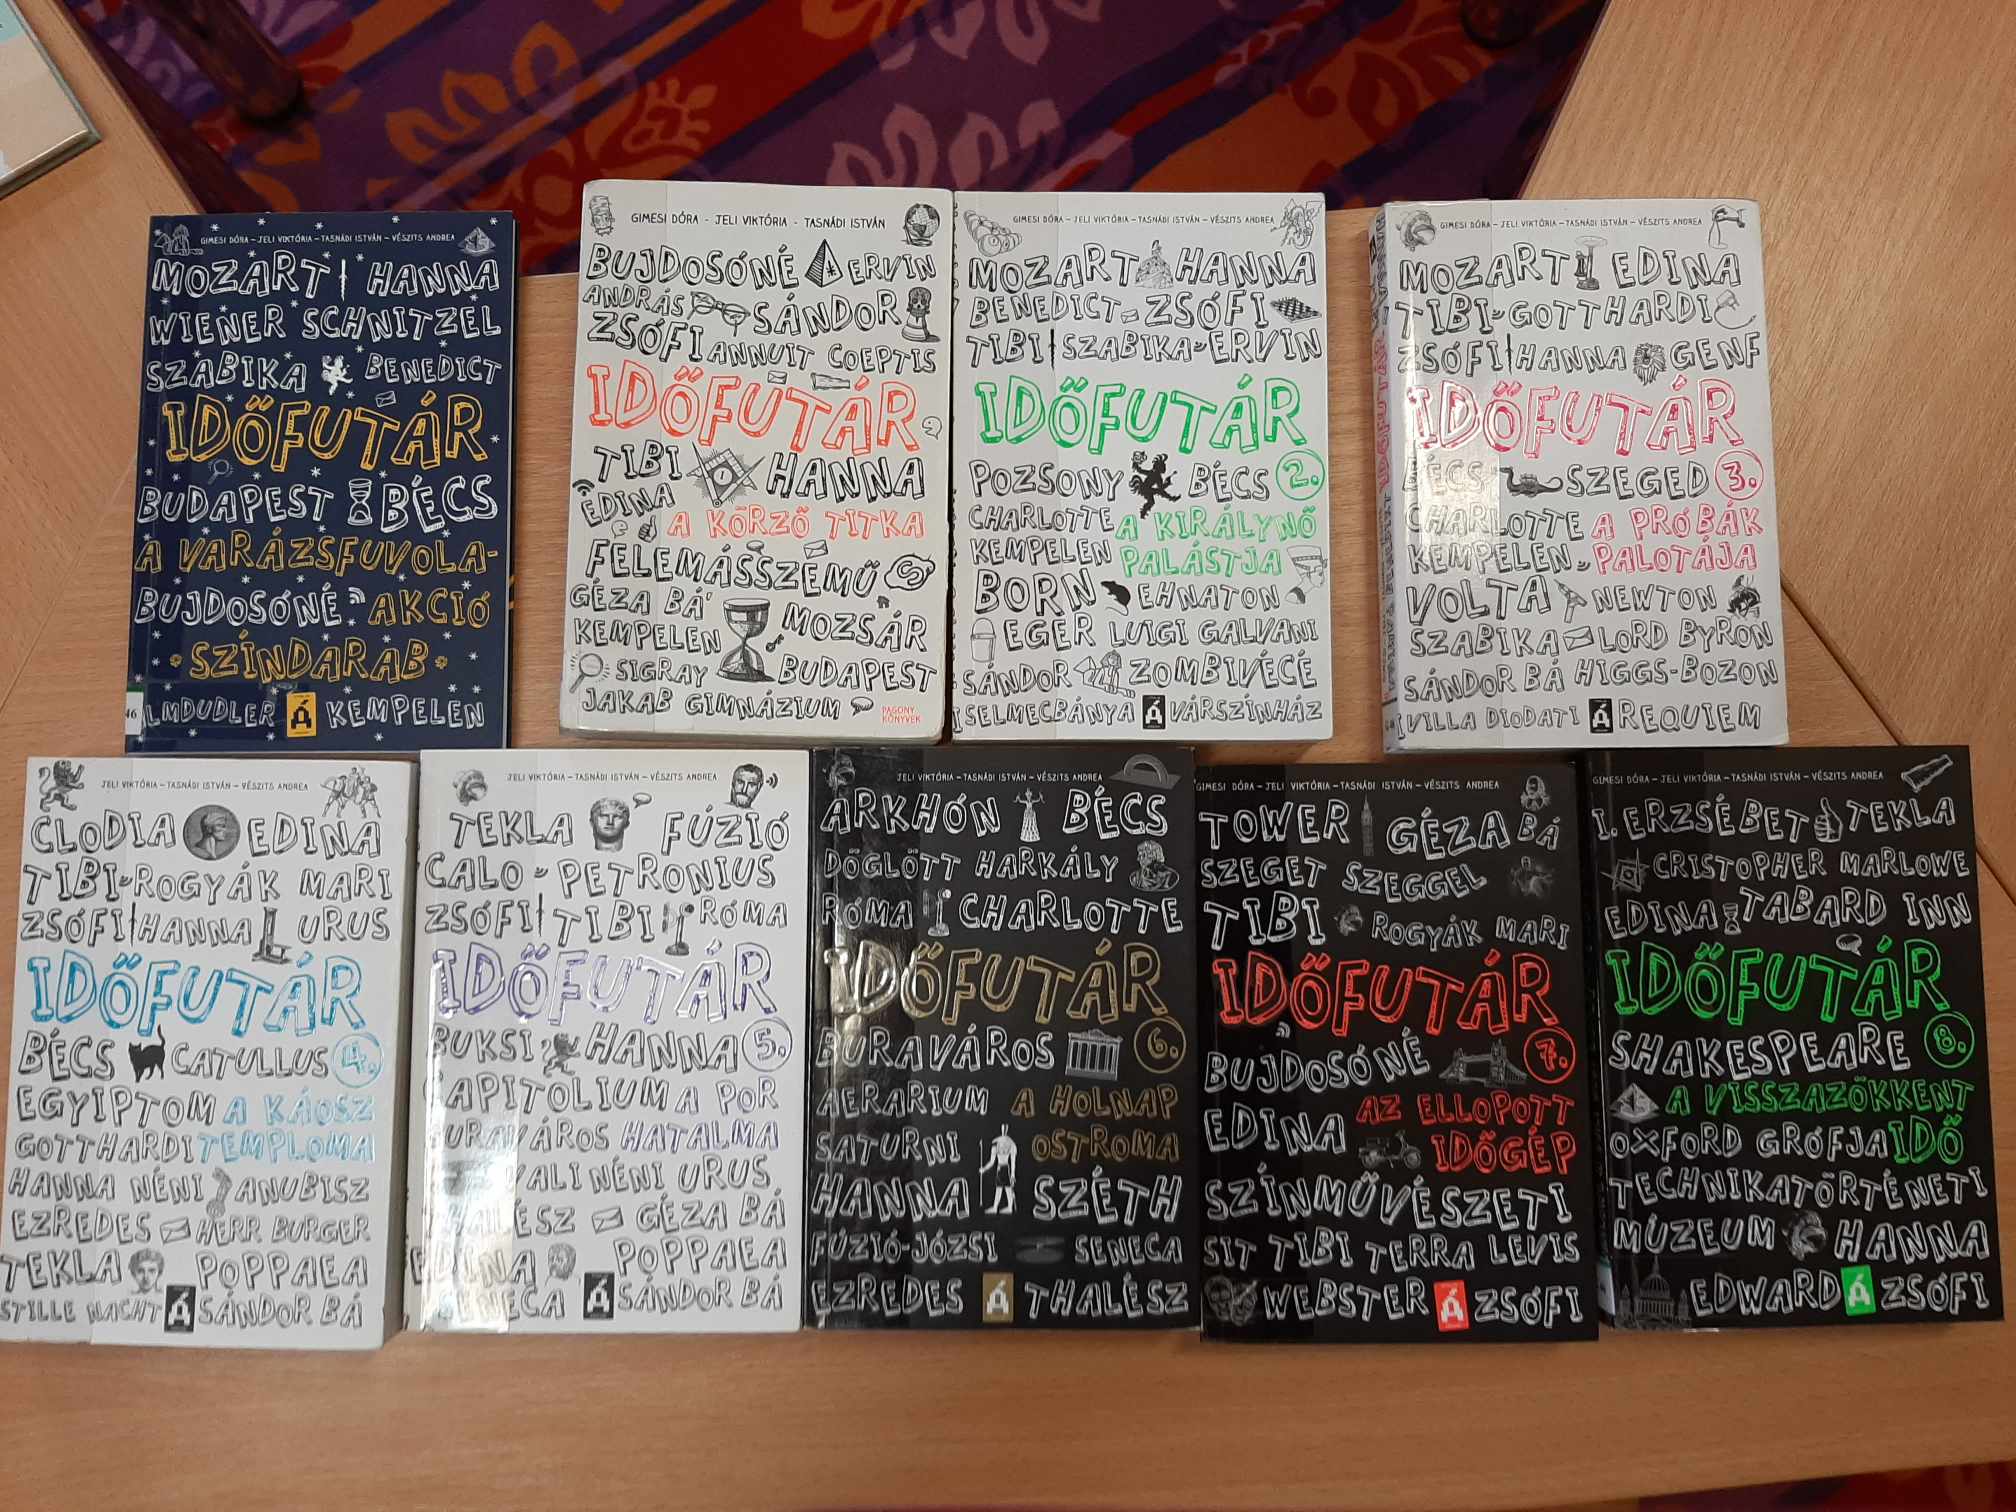 GIMESI DÓRA – JELI VIKTÓRIA – TASNÁDI ISTVÁN – VÉSZITS ANDREA
MOZART HANNA
WIENER SCHNITZEL
SZABIKA BENEDICT
IDŐFUTÁR
BUDAPEST BÉCS
A VARÁZSFUVOLA-
BUJDOSÓNÉ AKCIÓ
SZÍNDARAB
46
LMDUDLER Á KEMPELEN
GIMESI DÓRA - JELI VIKTÓRIA - TASNÁDI ISTVÁN
BUJDOSÓNÉ ERVIN
ANDRÁS SÁNDOR
ZSÓFI ANNUIT COEPTIS
IDŐFUTÁR
TIBI HANNA
EDINA
A KÖRZŐ TITKA
FELEMÁSSZEMŰ
GÉZA BÁ'
KEMPELEN MOZSÁR
SIGRAY BUDAPEST
JAKAB GIMNÁZIUM
PAGONY
KÖNYVEK
GIMESI DÓRA – JELI VIKTÓRIA – TASNÁDI ISTVÁN – VÉSZITS ANDREA
MOZART HANNA
BENEDICT ZSÓFI
TIBI SZABIKA ERVIN
IDŐFUTÁR
POZSONY BÉCS 2.
CHARLOTTE A KIRÁLYNŐ
KEMPELEN PALÁSTJA
BORN EHNATON
EGER LUIGI GALVANI
SÁNDOR ZOMBIVÉCÉ
SELMECBÁNYA Á VÁRSZÍNHÁZ
GIMESI DÓRA – JELI VIKTÓRIA – TASNÁDI ISTVÁN – VÉSZITS ANDREA
MOZART EDINA
TIBI GOTTHARDI
ZSÓFI HANNA GENF
IDŐFUTÁR
BÉCS SZEGED 3.
CHARLOTTE A PRÓBÁK
KEMPELEN PALOTÁJA
VOLTA NEWTON
SZABIKA LORD BYRON
SÁNDOR BÁ HIGGS-BOZON
VILLA DIODATI Á REQUIEM
IDŐFUTÁR
JELI VIKTÓRIA – TASNÁDI ISTVÁN – VÉSZITS ANDREA
CLODIA EDINA
TIBI ROGYÁK MARI
ZSÓFI HANNA URUS
IDŐFUTÁR
BÉCS CATULLUS 4.
EGYIPTOM A KÁOSZ
GOTTHARDI TEMPLOMA
HANNA NÉNI ANUBISZ
EZREDES HERR BURGER
TEKLA POPPAEA
STILLE NACHT Á SÁNDOR BÁ
JELI VIKTÓRIA – TASNÁDI ISTVÁN – VÉSZITS ANDREA
TEKLA FÚZIÓ
CALO PETRONIUS
ZSÓFI TIBI RÓMA
IDŐFUTÁR
BUKSI HANNA 5.
CAPITOLIUM A POR
BURAVÁROS HATALMA
VALI NÉNI URUS
THALÉSZ GÉZA BÁ
EDINA POPPAEA
SENECA Á SÁNDOR BÁ
JELI VIKTÓRIA – TASNÁDI ISTVÁN – VÉSZITS ANDREA
ARKHÓN BÉCS
DÖGLÖTT HARKÁLY
RÓMA CHARLOTTE
IDŐFUTÁR
BURAVÁROS 6.
AERARIUM A HOLNAP
SATURNI OSTROMA
HANNA SZÉTH
FÚZIÓ-JÓZSI SENECA
EZREDES Á THALÉSZ
GIMESI DÓRA – JELI VIKTÓRIA – TASNÁDI ISTVÁN – VÉSZITS ANDREA
TOWER GÉZA BÁ
SZEGET SZEGGEL
TIBI ROGYÁK MARI
IDŐFUTÁR
BUJDOSÓNÉ 7.
EDINA AZ ELLOPOTT
IDŐGÉP
SZÍNMŰVÉSZETI
SIT TIBI TERRA LEVIS
WEBSTER Á ZSÓFI
GIMESI DÓRA – JELI VIKTÓRIA – TASNÁDI ISTVÁN – VÉSZITS ANDREA
I. ERZSÉBET TEKLA
CRISTOPHER MARLOWE
EDINA TABARD INN
IDŐFUTÁR
SHAKESPEARE 8.
A VISSZAZÖKKENT
OXFORD GRÓFJA IDŐ
TECHNIKATÖRTÉNETI
MÚZEUM HANNA
EDWARD Á ZSÓFI